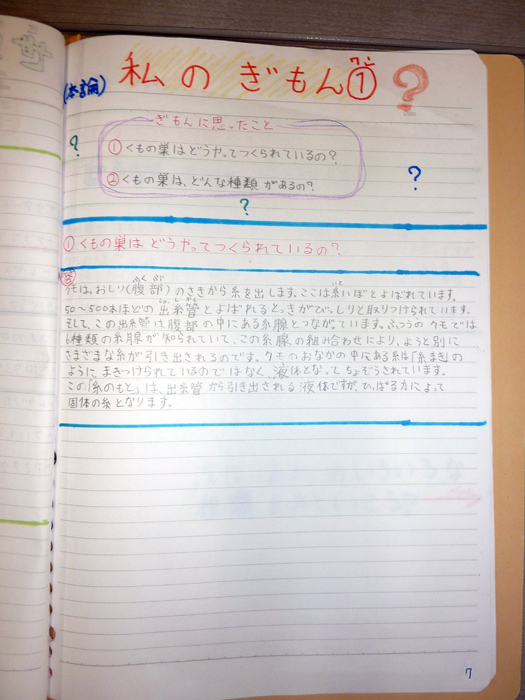 (本論) 私のぎもん①?
ぎもんに思ったこと
①くもの巣はどうやってつくられているの?
②くもの巣は、どんな種類があるの?
①くもの巣はどうやってつくられているの?
答
クモは、おしり(腹部)のさきから糸を出します。ここは糸いぼとよばれています。
50〜500本ほどの出糸管とよばれるとっきがびっしりと取りつけられています。
そして、この出糸管は腹部の中にある糸腺とつながっています。ふつうのクモでは
6種類の糸腺が知られていて、この糸腺の組み合わせにより、ようと別に
さまざまな糸が引き出されるのです。クモのおなかの中にある糸は「糸まき」の
ように、まきつけられているのではなく、液体となってちょぞうされています。
この「糸のもと」は、出糸管から引き出される液体ですが、ひっぱる力によって
固体の糸となります。
7